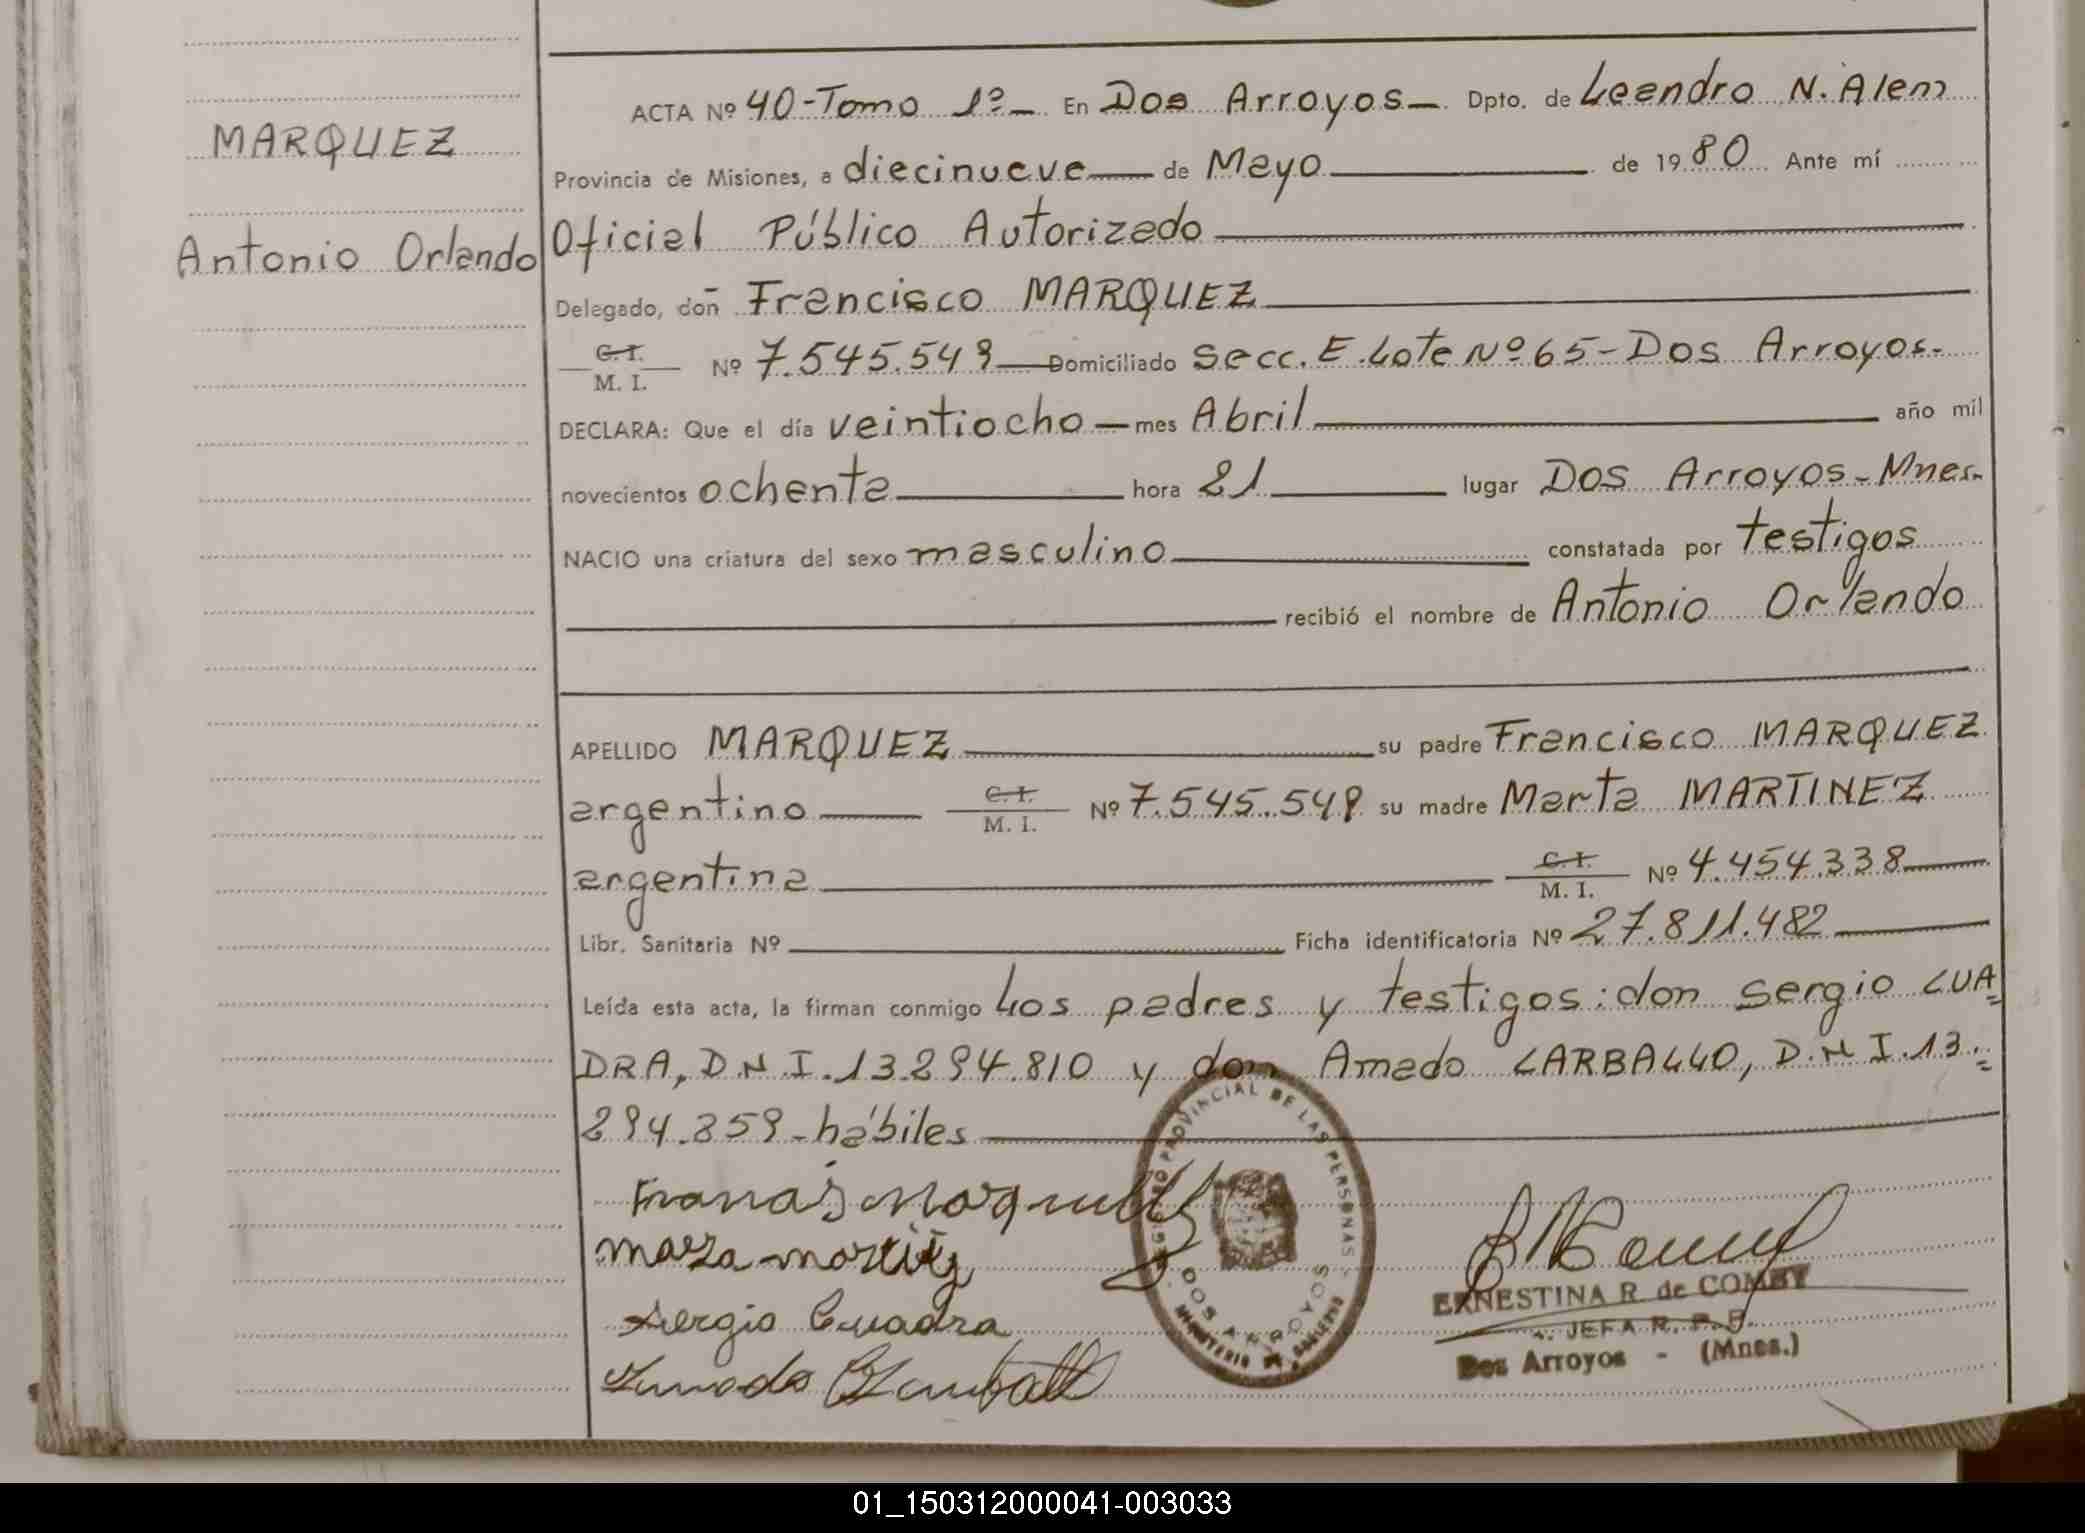 MARQUEZ
Antonio Orlando
ACTA Nº 40-Tomo 1º- En Dos Arroyos- Dpto. de Leandro N. Alem
Provincia de Misiones, a diecinueve de Mayo de 1980 Ante mí
Oficial Público Autorizado
Delegado, don Francisco MARQUEZ
C. I. M. I. Nº 7.545.549 Domiciliado Secc. E. Lote Nº 65-Dos Arroyos-
DECLARA: Que el día veintiocho mes Abril año mil
novecientos ochenta hora 21 lugar Dos Arroyos-Mnes-
NACIO una criatura del sexo masculino constatada por testigos
recibió el nombre de Antonio Orlando
APELLIDO MARQUEZ su padre Francisco MARQUEZ
argentino C. I. M. I. Nº 7.545.549 su madre Marta MARTINEZ
argentina C. I. M. I. Nº 4.454.338
Libr. Sanitaria Nº Ficha identificatoria Nº 27.811.482
Leída esta acta, la firman conmigo Los padres y testigos: don Sergio CUA=
DRA, D.N.I. 13.294.810 y don Amado CARBALLO, D.N.I. 13.=
294.859-hábiles
Marta Martinez
Sergio Cuadra
REGISTRO PROVINCIAL DE LAS PERSONAS
DOS ARROYOS
MINISTERIO DE GOBIERNO
ERNESTINA R. de COMBY
JEFA R. P. P.
Dos Arroyos - (Mnes.)
01_150312000041-003033